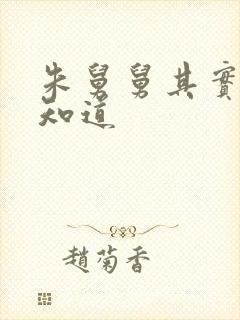 朱舅舅其實
知道
趙菊香